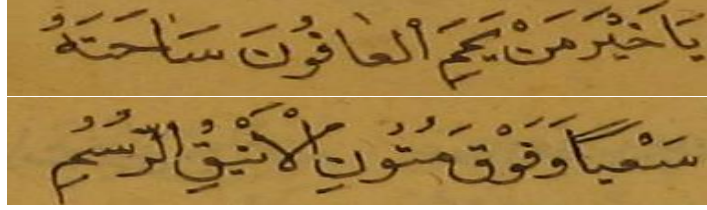 يَا خَيْرَ مَنْ يَمَّمَ الْعَافُونَ سَاحَتَهُ
سَعْيًا وَفَوْقَ مُتُونِ الْأَيْنُقِ الرُّسُمِ